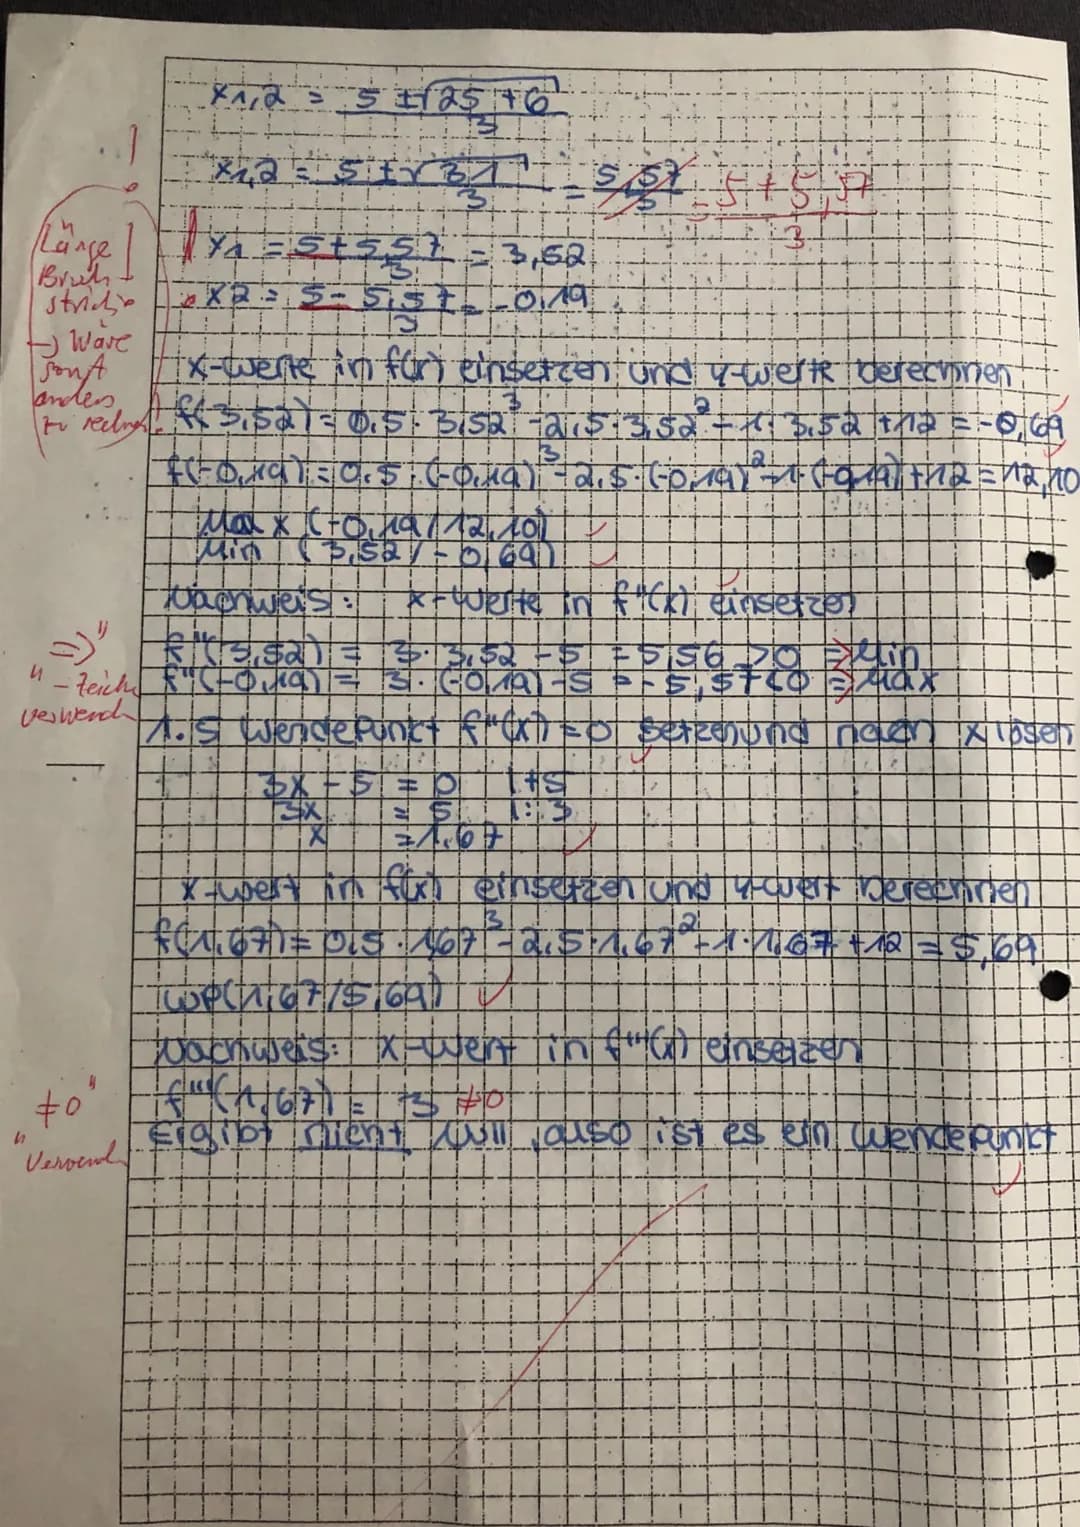 x1,2 = 5 ±√25 + 6 / 3
!
x1,2 = 5 ±√31 / 3 = 5,57 / 3 = 5 + 5,57 / 3
Länge
Bruch
striche
→ Wäre
sonst
anders
zu rechn.
x1 = 5 + 5,57 / 3 = 3,52
x2 = 5 - 5,57 / 3 = -0,19
x-werte in f(x) einsetzen und y-werte berechnen
f(3,52) = 0,5 · 3,52³ - 2,5 · 3,52² - 1 · 3,52 + 12 = -0,69
f(-0,19) = 0,5 · (-0,19)³ - 2,5 · (-0,19)² - 1 · (-0,19) + 12 = 12,10
Max x (-0,19 / 12,10)
Min (3,52 / - 0,69)
Nachweis: x-werte in f''(x) einsetzen
f''(3,52) = 3 · 3,52 - 5 = 5,56 > 0 ⇒ Min
f''(-0,19) = 3 · (-0,19) - 5 = - 5,57 < 0 ⇒ Max
"⇒"
- Zeiche
verwend
1.5 Wendepunkt f''(x) = 0 setzen und nach x lösen
3x - 5 = 0 | +5
3x = 5 | : 3
x = 1,67
x-wert in f(x) einsetzen und y-wert berechnen
f(1,67) = 0,5 · 1,67³ - 2,5 · 1,67² - 1 · 1,67 + 12 = 5,69
WP(1,67 / 5,69)
Nachweis: x-wert in f'''(x) einsetzen
f'''(1,67) = 3 ≠0
"≠0"
Verwend
Ergibt nicht Null, also ist es ein Wendepunkt